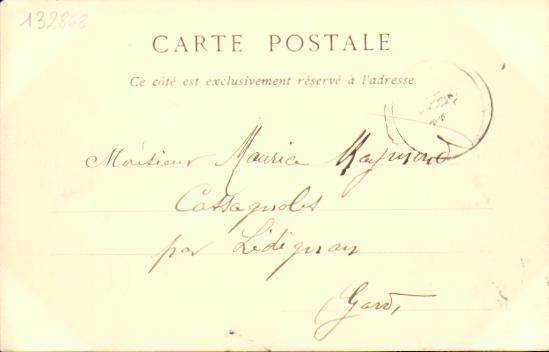 132868
CARTE POSTALE
Ce côté est exclusivement réservé à l'adresse
Monsieur Maurice Raymond
Cassagnoles
par Lédignan
Gard,